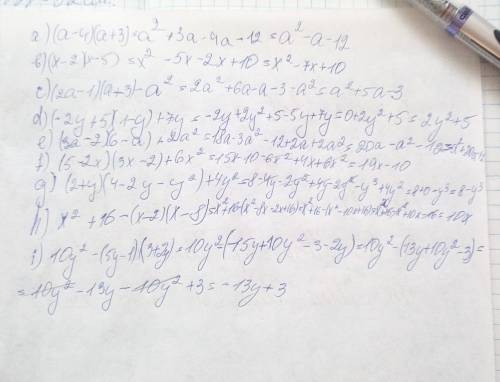 a) (a-4)(a+3)=a²+3a-4a-12=a²-a-12
b) (x-2)(x-5)=x²-5x-2x+10=x²-7x+10
c) (2a-1)(a+3)-a²=2a²+6a-a-3-a²=a²+5a-3
d) (-2y+5)(1-y)+7y=-2y+2y²+5-5y+7y=0+2y²+5=2y²+5
e) (3a-2)(6-a)+2a²=18a-3a²-12+2a+2a²=20a-a²-12
f) (5-2x)(3x-2)+6x²=15x-10-6x²+4x+6x²=19x-10
g) (2+y)(4-2y-y²)+4y²=8-4y-2y²+4y-2y²-y³+4y²=8+0-y³=8-y³
h) x²+16-(x-2)(x-8)=x²+16-(x²-8x-2x+16)=x²+16-(x²-10x+16)=10x
i) 10y²-(5y-1)(3+2y)=10y²-(15y+10y²-3-2y)=10y²-(13y+10y²-3)=
=10y²-13y-10y²+3=-13y+3